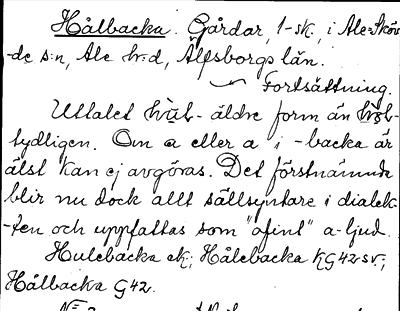 Hålbacka. Gårdar, 1-sk., i Ale-Sköv
-de s:n, Ale h:d, Älfsborgs län.
Fortsättning.
Uttalet - äldre form än
tydligen. Om a eller a i -backa är
älst kan ej avgöras. Det förstnämnda
blir nu dock allt sällsyntare i dialek-
-ten och uppfattas som "ofint" a-ljud.
Hulebacka ek; Hålebacka KG42 sv;
Hålbacka G42.